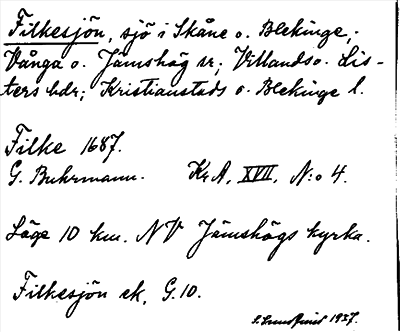 Filkesjön, sjö i Skåne o. Blekinge,
Vånga o. Jämshög sr; Villands o. Lis-
ters hdr; Kristianstads o. Blekinge l.
Filke 1687.
G. Buhrmann. KrA, XVII, N:o 4.
Läge 10 km. NV Jämshögs kyrka.
Filkesjön ek, G.10.
1937.